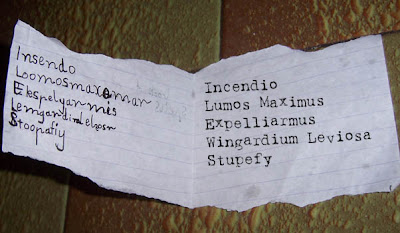 Insendo
Loomosmaxemar
Ekspelyarmis
Stoopafiy
Incendio
Lumos Maximus
Expelliarmus
Wingardium Leviosa
Stupefy